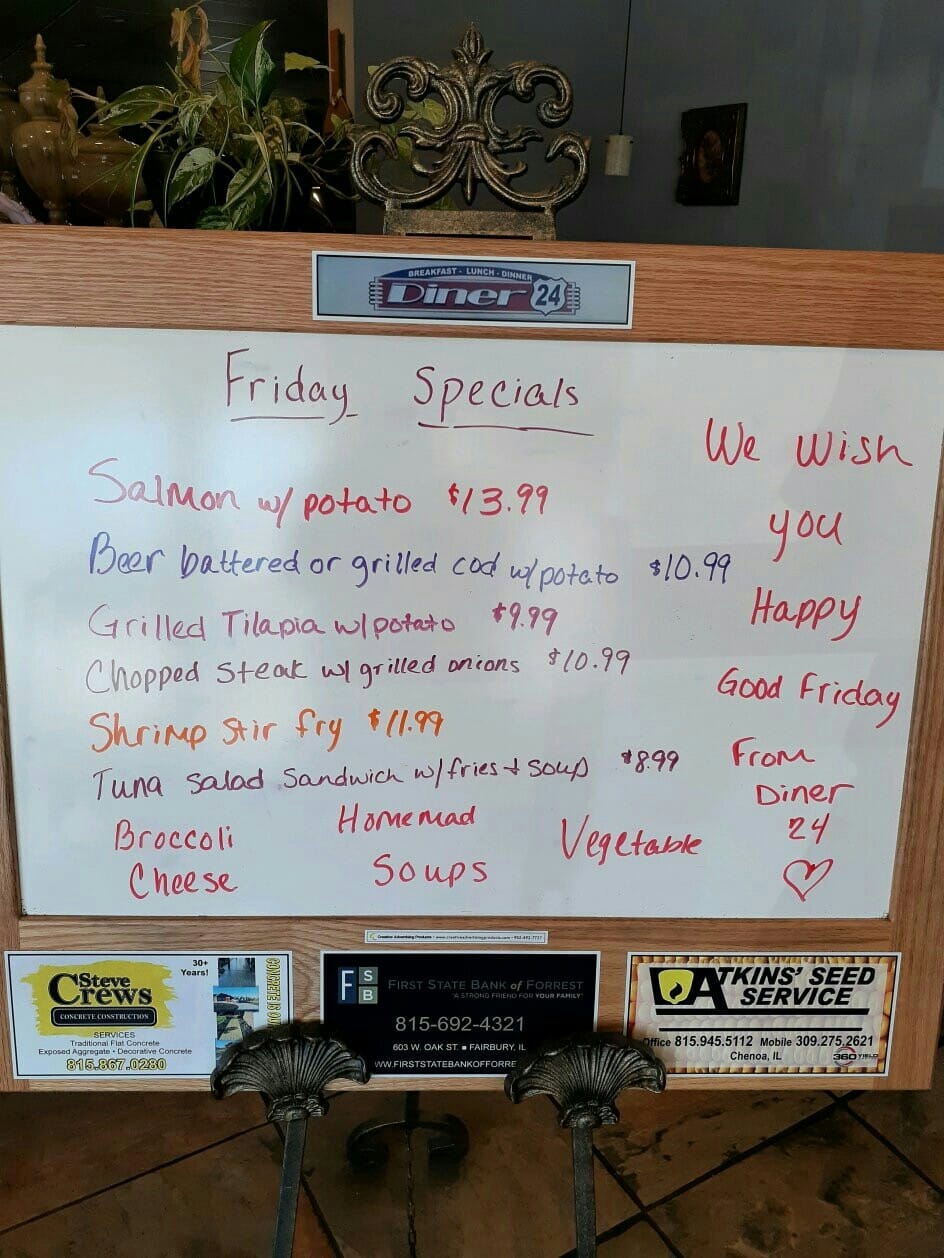 BREAKFAST - LUNCH - DINNER
Diner 24
Friday Specials
Salmon w/ potato $13.99
Beer battered or grilled cod w/potato $10.99
Grilled Tilapia w/potato $9.99
Chopped Steak w/ grilled onions $10.99
Shrimp Stir fry $11.99
Tuna salad Sandwich w/fries + soup $8.99
Homemad
Soups
Broccoli
Cheese
Vegetable
We wish
you
Happy
Good Friday
From
Diner
24
Creative Advertising Products
Steve
Crews
CONCRETE CONSTRUCTION
30+
Years!
SERVICES
Traditional Flat Concrete
Exposed Aggregate • Decorative Concrete
815.867.0280
CONCRETE IS
F S B
FIRST STATE BANK of FORREST
"A STRONG FRIEND FOR YOUR FAMILY"
815-692-4321
603 W. OAK ST. ■ FAIRBURY, IL
WWW.FIRSTSTATEBANKOFFORRE
ATKINS' SEED
SERVICE
Office 815.945.5112 Mobile 309.275.2621
Chenoa, IL
360 YIELD